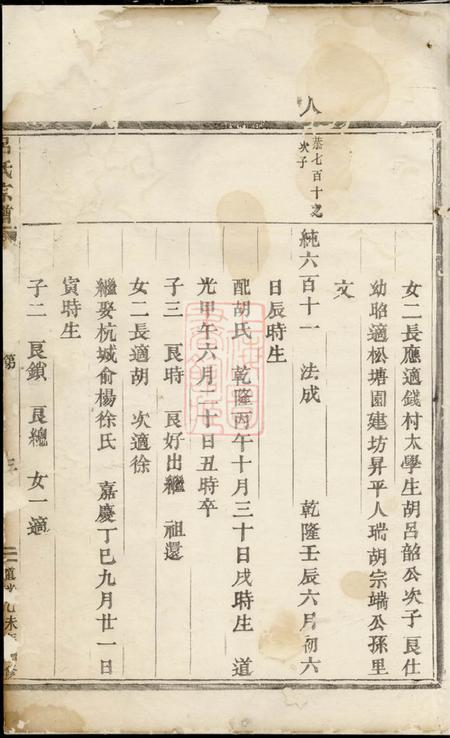 女二長應適錢村太學生胡呂韶公次子艮仕
幼昭適松塘園建坊昇平人瑞胡宗端公孫里
文
恭七百十之
次子
純六百十一 法成 乾隆壬辰六月初六
日辰時生
配胡氏 乾隆丙午十月三十日戌時生 道
光甲午六月二十日丑時卒
子三 艮時 艮好出繼 祖還
女二長適胡 次適徐
繼娶杭城俞楊徐氏 嘉慶丁巳九月廿一日
寅時生
子二 艮鎖 艮總 女一適
呂氏宗譜